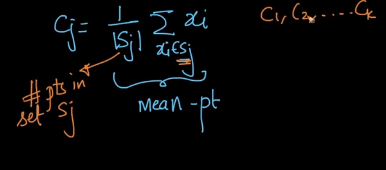 Cj = 1/|Sj| Σ xi∈Sj xi
C1, C2, ..... Ck
# pts in
set Sj
mean-pt